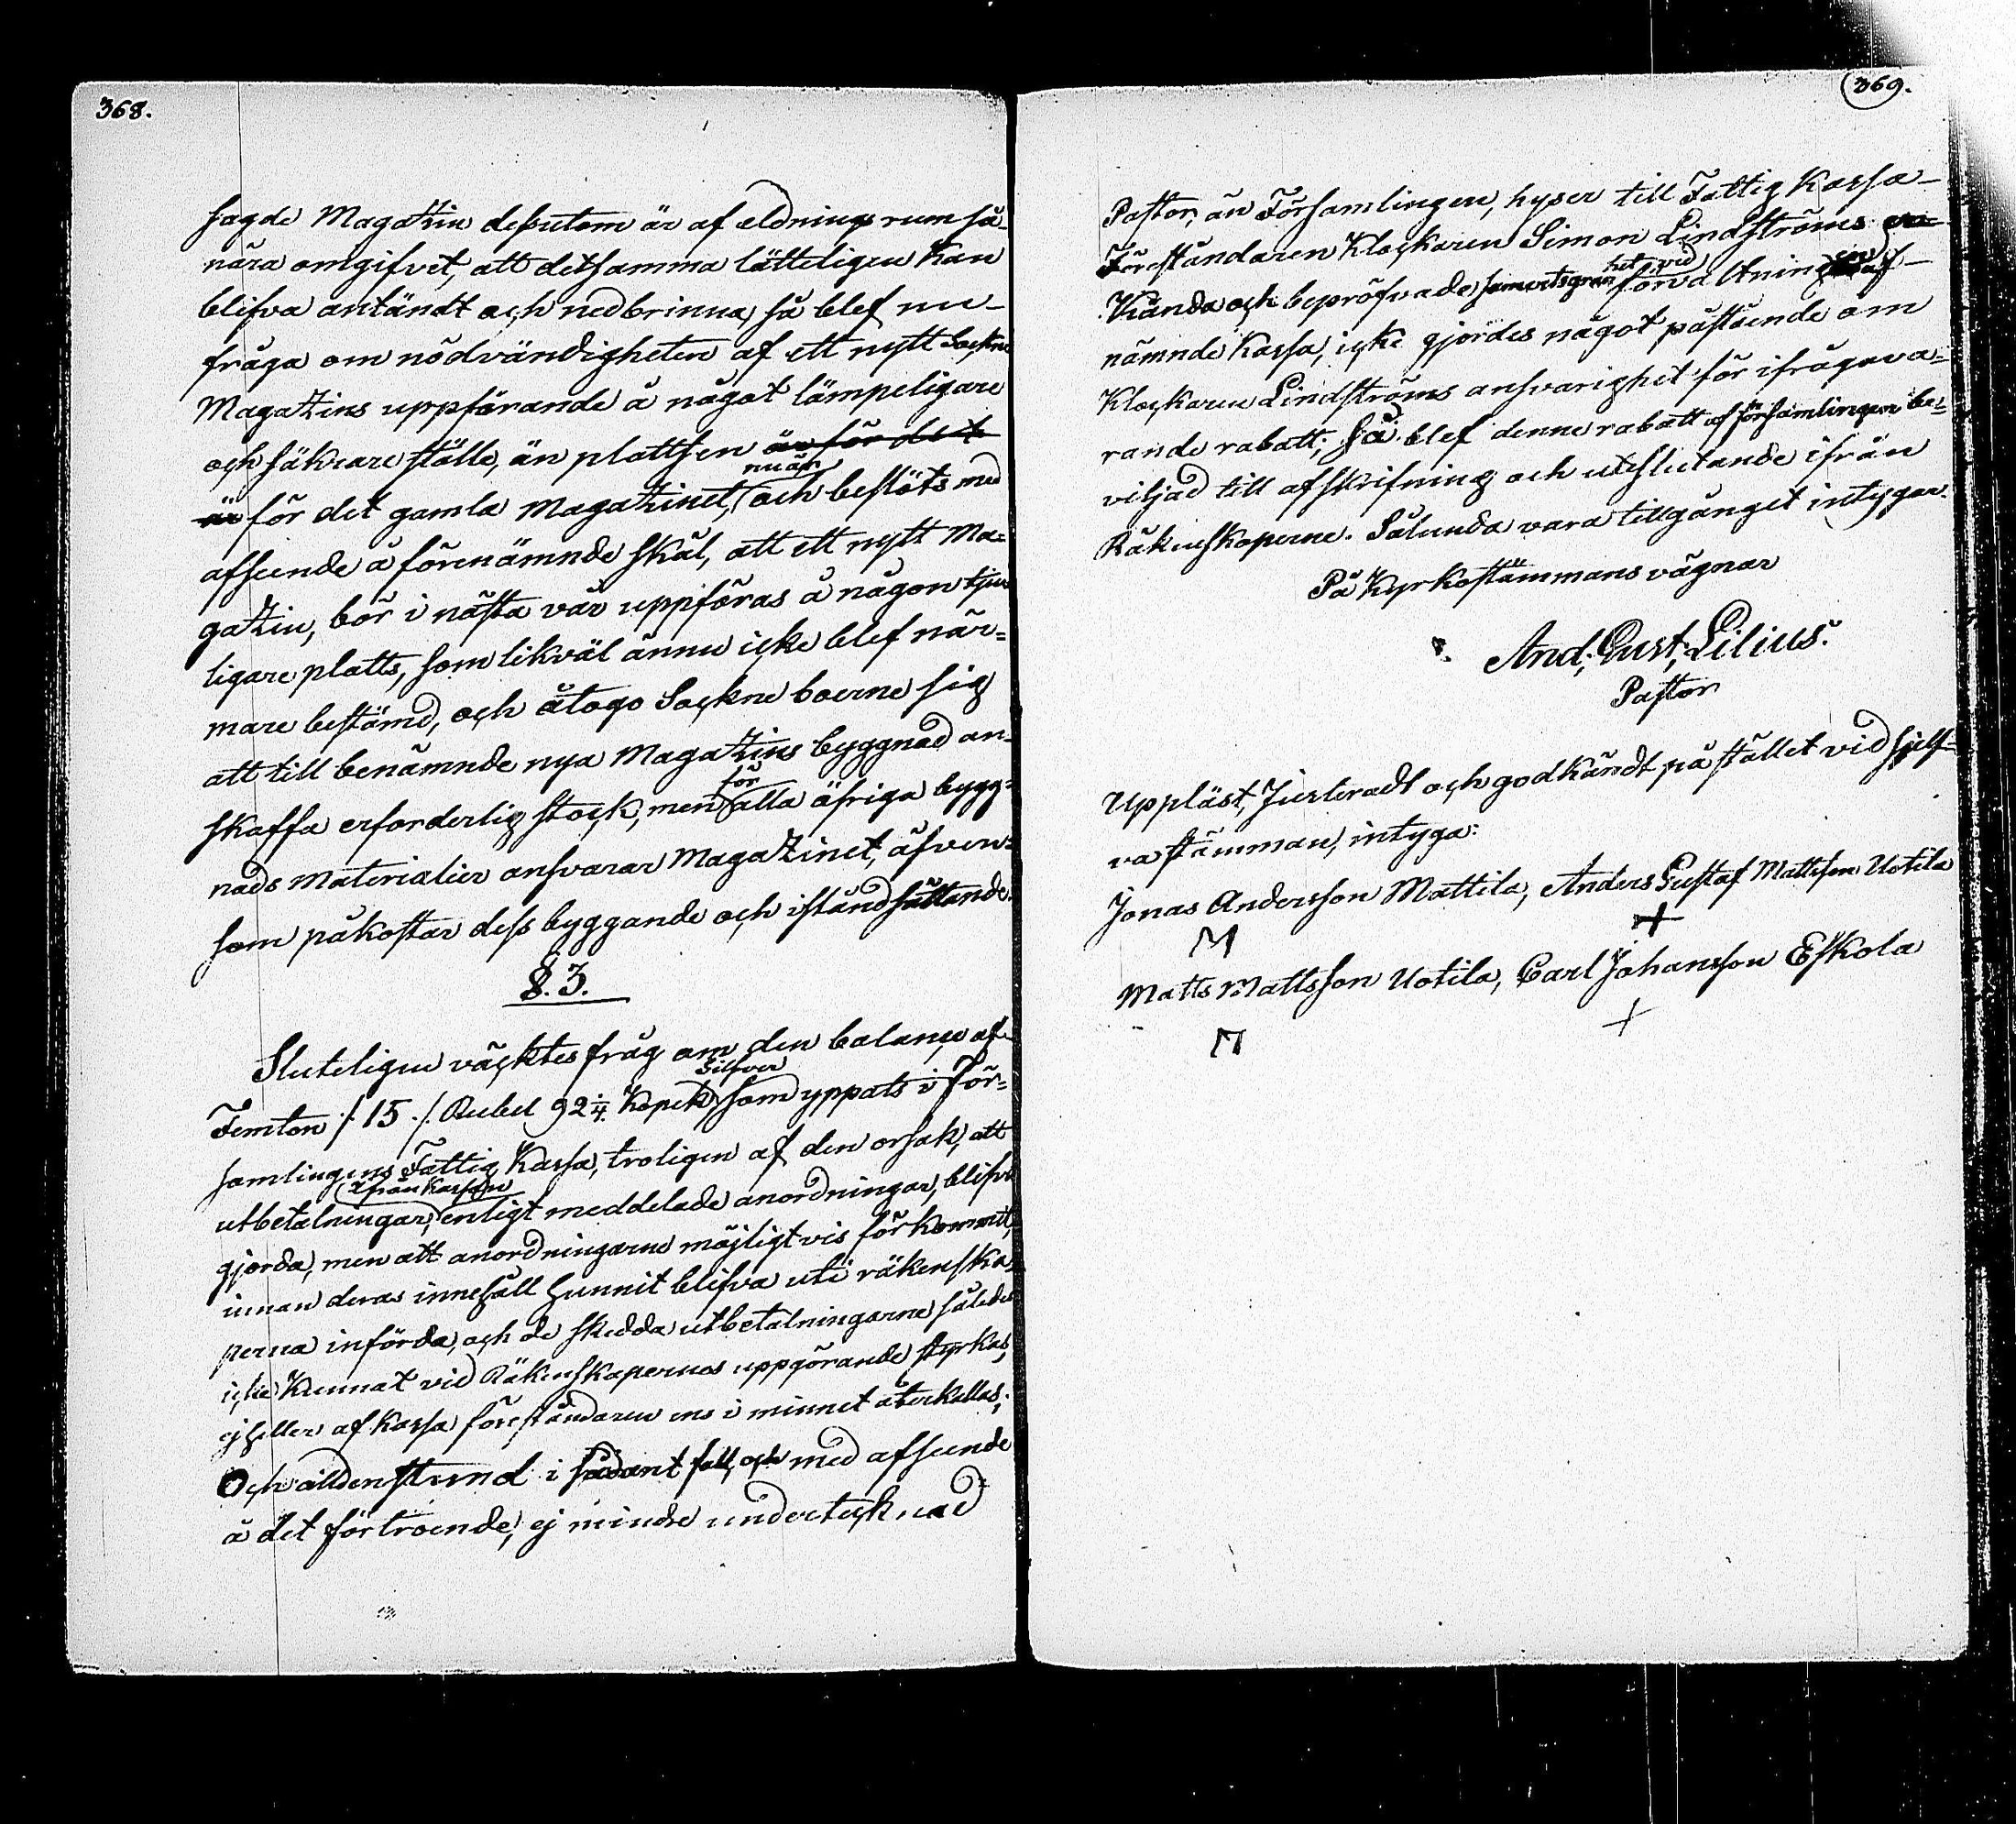 368.
sagde Magatzin dessutom är af eldnings rum så
nära omgifvet, att detsamma lätteligen kan
blifva antändt och nedbrinna, så blef nu
fråga om nödvändigheten af ett nytt Sockne
Magatzins uppförande å något lämpeligare
och säkrare ställe, än plattsen än för det
nu är
är för det gamla Magatzinet, och beslöts med
afseende å förenämnde skäl, att ett nytt Ma=
gatzin, bör i nästa vår uppföras å någon tjen
ligare platts, som likväl ännu icke blef när=
mare bestämd, och åtogo Sockne boerne sig
att till benämnde nya Magatzins byggnad an=
för
skaffa erforderlig stock, men alla öfriga bygg=
nads materialier ansvarar Magatzinet, äfven=
som påkostar dess byggande och iståndsättande.
§. 3.
Sluteligen väcktes fråg om den balance af
Silfver
Femton /: 15 :/ Rubel 92 1/4 Kopek, som yppats i För=
samlingens Fattig Kassa, troligen af den orsak, att
ifrån Kassan
utbetalningar, enligt meddelade anordningar, blifvit
gjorda, men att anordningarne möjligtvis förkommit,
innan deras innehåll hunnit blifva uti räkenska=
perna införda, och de skedda utbetalningarne således
icke kunnat vid Räkenskapernes uppgörande styrkas,
ej heller af Kassa föreståndaren ens i minnet återkallas;
Och alldenstund i sådant fall, och med afseende
å det förtroende, ej mindre undertecknad
369.
Pastor, än Församlingen, hyser till Fattig Kassa
Föreståndaren Klockaren Simon Lindströms
het vid en
Kända och bepröfvade samvetsgran förvaltning af
nämnde Kassa, icke gjordes något påstående om
Klockaren Lindströms ansvarighet för ifrågava=
rande rabatt; Så blef denne rabatt af församlingen be=
viljad till afskrifning och uteslutande ifrån
Räkenskaperne. Sålunda vara tillgånget intygar.
På Kyrkostämmans vägnar
And. Gust. Lilius.
Pastor
Uppläst, Justeradt och godkändt på stället vid sjelf=
va stämman, intyga:
Jonas Andersson Mattila, Anders Gustaf Mattsson Uotila
M +
Matts Mattsson Uotila, Carl Johansson Eskola
M +